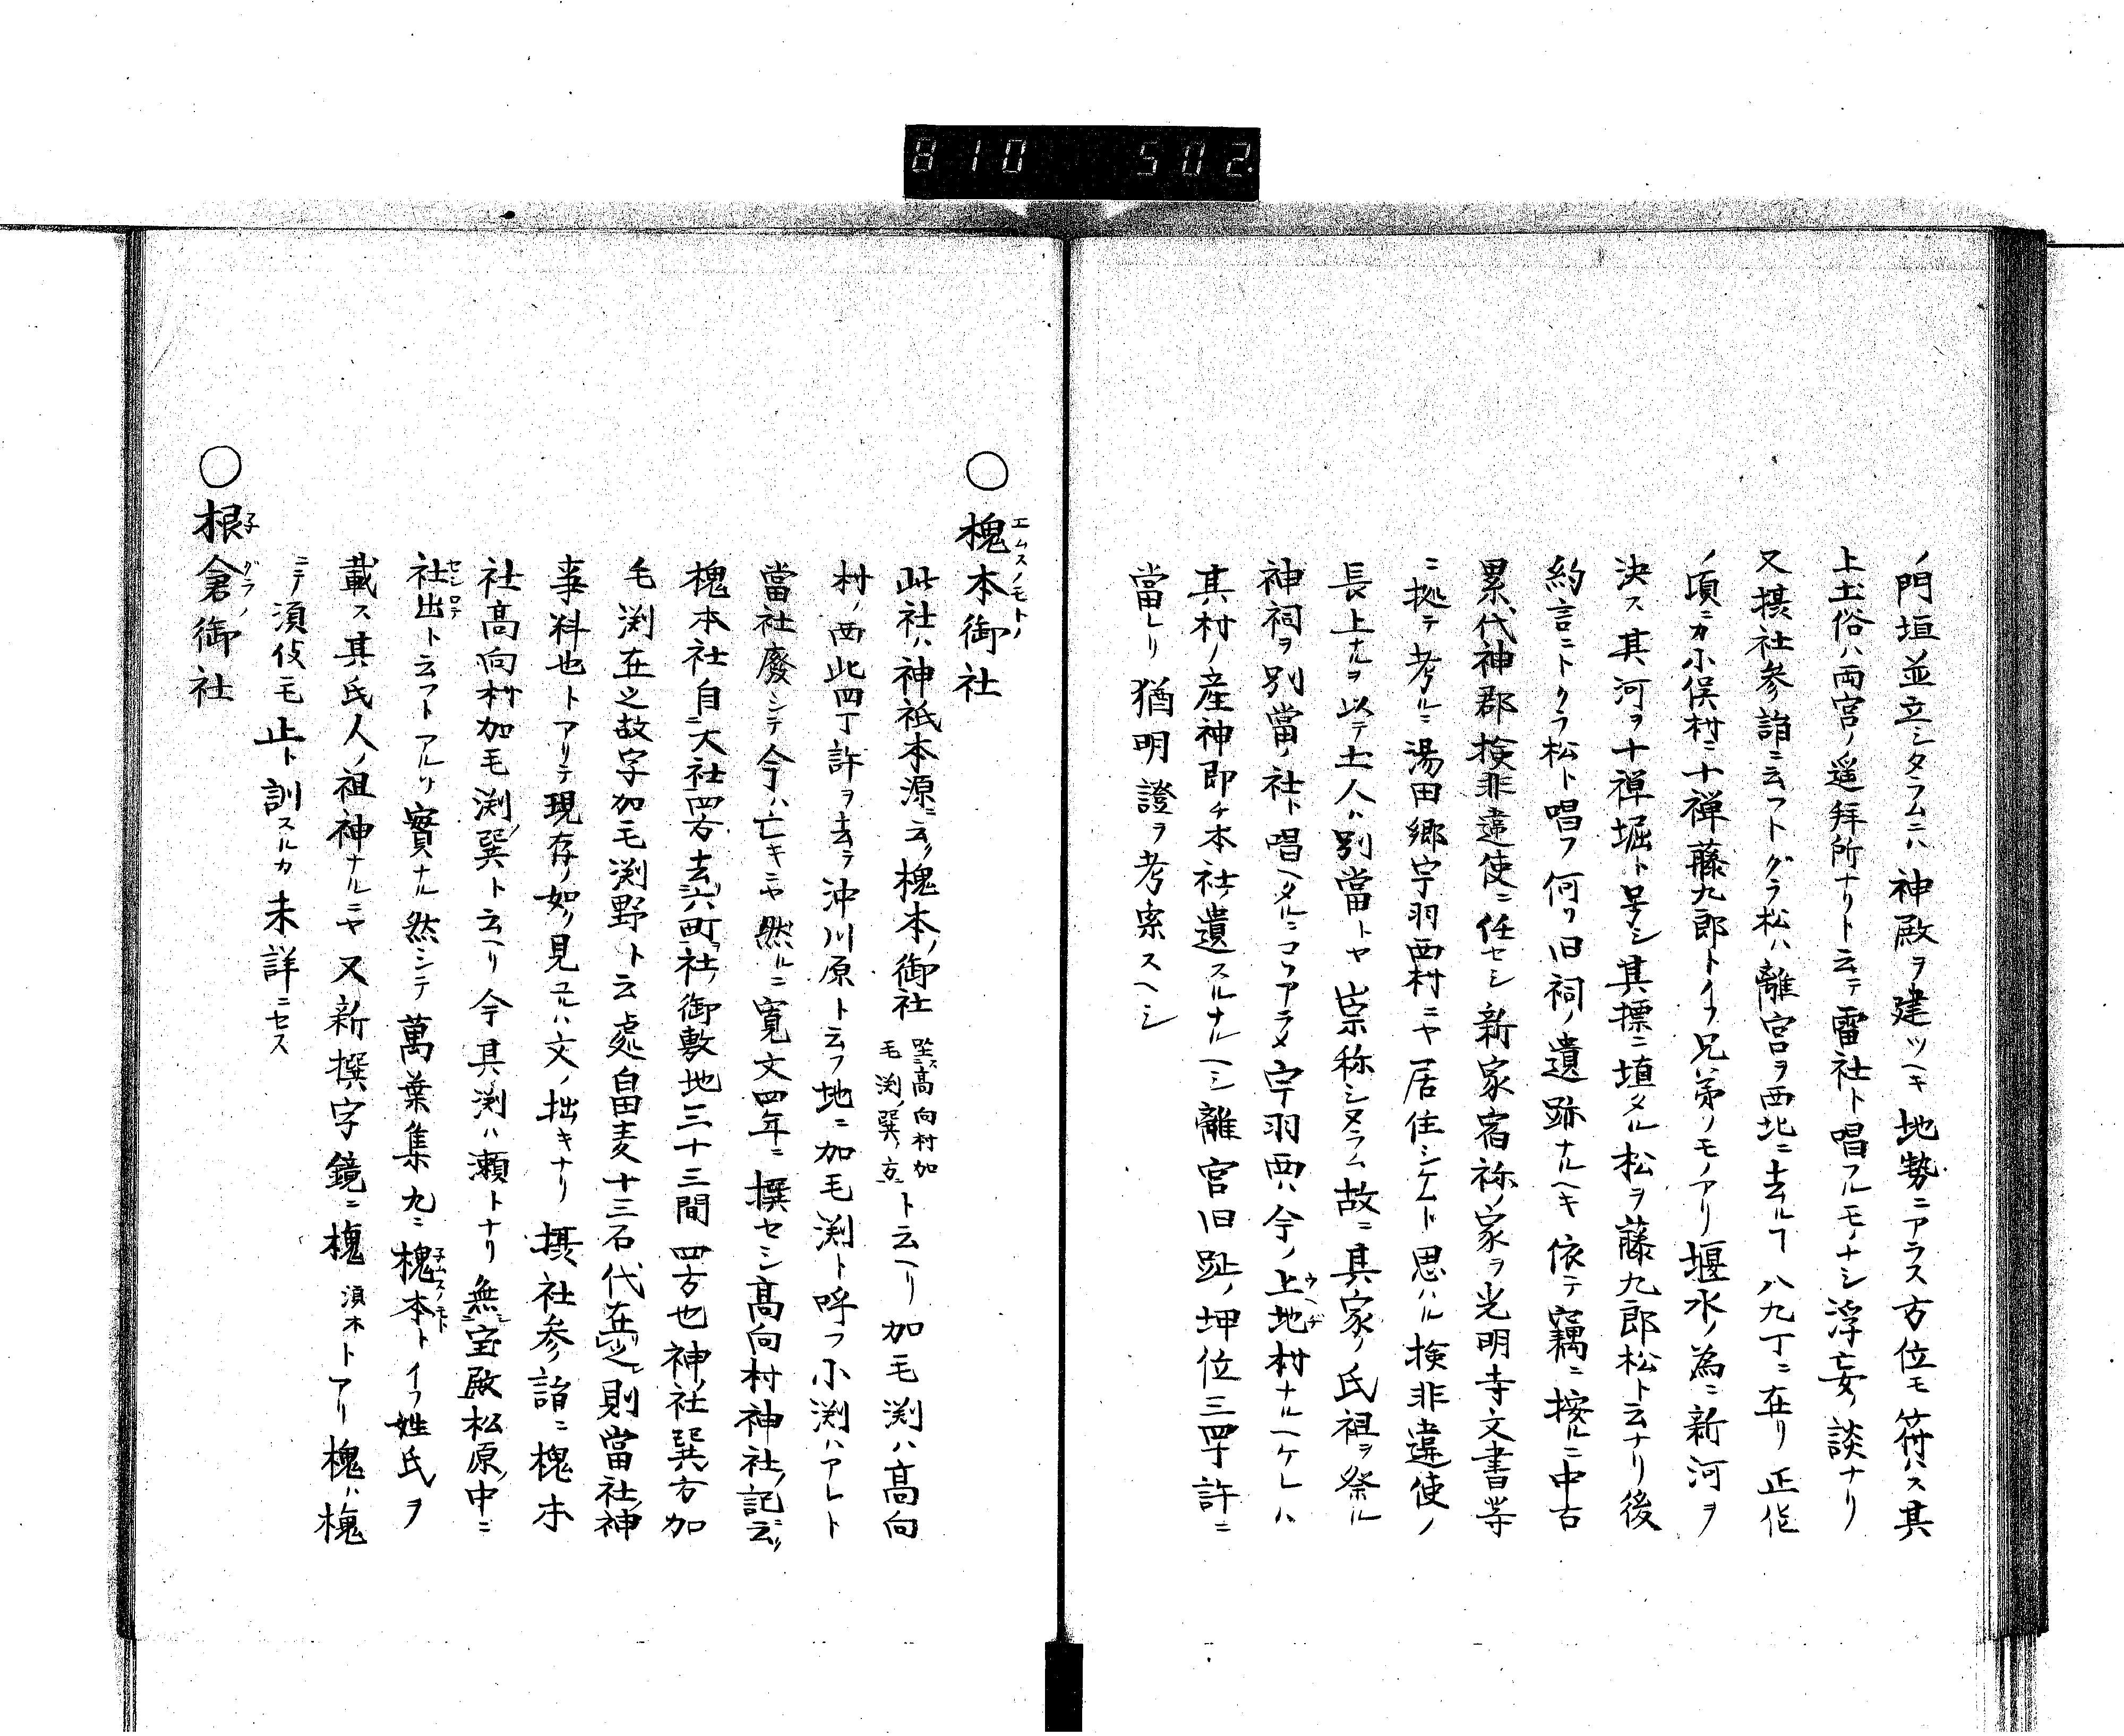 810 502.
ノ門垣並立シタラムニハ神殿ヲ建ツヘキ地勢ニアラス方位モ符ハス其
上土俗ハ両宮ノ遥拜所ナリト云テ雷社ト唱フルモノナシ浮妄ノ談ナリ
又摂社参詣ニ云フトグラ松ハ離宮ヲ西北ニ去ルヿ八九丁ニ在リ正佗
ノ頃ニカ小俣村ニ十禅藤九郎トイフ兄弟ノモノアリ堰水ノ為ニ新河ヲ
決ス其河ヲ十禅堀ト号シ其標ニ埴タル松ヲ藤九郎松ト云ナリ後
約言ニトクラ松ト唱フ何リ旧祠ノ遺跡ナルヘキ依テ竊ニ按ルニ中古
累代神郡検非違使ニ任セシ新家宿祢ノ家ヲ光明寺文書等
ニ拠テ考ルニ湯田郷宇羽西村ニヤ居住シケムト思ハル検非違使ノ
長上ナルヲ以テ土人ハ別當トヤ崇称シヌラム故ニ其家ノ氏祖ヲ祭ル
神祠ヲ別當ノ社ト唱ヘタルニコソアラメ宇羽西ハ今ノ上地村ナルヘケレハ
其村ノ産神即チ本社ノ遺スルナルヘシ離宮旧趾ノ坤位三四丁許ニ
當レリ猶明證ヲ考索スヘシ
○槐本御社
エムスノモトノ
此社ハ神祇本源ニ云ク槐本ノ御社坐高向村加毛渕ノ巽ノ方ニト云ヘリ加毛渕ハ高向
村ノ西北四丁許ヲ去テ沖川原ト云フ地ニ加毛渕ト呼フ小渕ハアレト
當社廢シテ今ハ亡キニヤ然ルニ寛文四年ニ撰セシ高向村神社ノ記ニ云ク
槐本社自大社四方去六町社ノ御敷地三十三間四方也神社巽方加
毛渕在之故字加毛渕野ト云處畠麦十三石代在之則當社神
事料也トアリテ現存ノ如ク見ユルハ文ノ拙キナリ摂社参詣ニ槐本
社高向村加毛渕ノ巽ト云ヘリ今其渕ハ瀬トナリ無宝殿松原ノ中ニ
社出ト云フトアルリ實ナル然シテ萬葉集九ニ槐本トイフ姓氏ヲ
載ス其氏人ノ祖神ナルニヤ又新撰字鏡ニ槐 須木トアリ槐ハ槐
ニテ須伎モ止ト訓スルカ未詳ニセス
○根倉御社
子グラノ